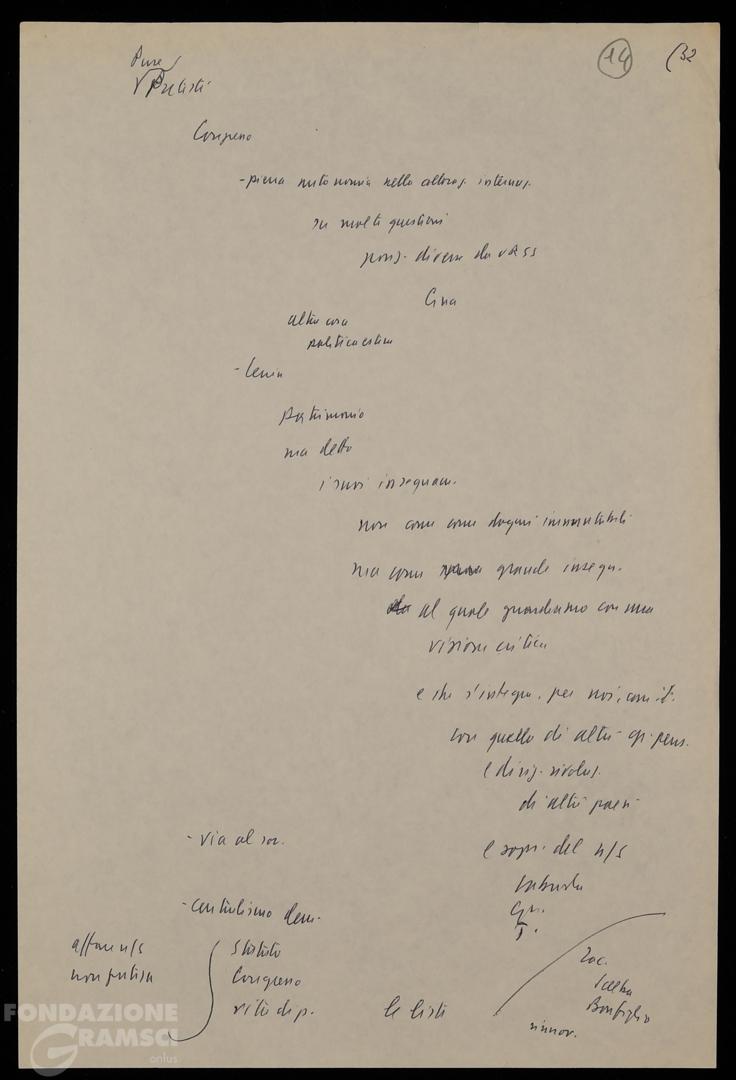 Pure
14
32
Congresso
- piena autonomia nella
su molte questioni
posiz. diverse da URSS
Cina
altra cosa
politica estera
- Lenin
patrimonio
ma detto
i suoi insegnam.
non come come dogmi immutabili
ma come grande insegn.
al quale guardiamo con una
visione critica
e che s'integra, per noi, com. it.
con quello di altri gr. pens.
e dirig. rivoluz.
di altri paesi
- via al soc.
e sopr. del n/s
Labriola
Gr.
T.
- centralismo dem.
affare n/s
Statuto
Zac.
Congresso
Scelba
vita di p.
le liste
Bonfiglio
rinnov.
FONDAZIONE
GRAMSCI
onlus